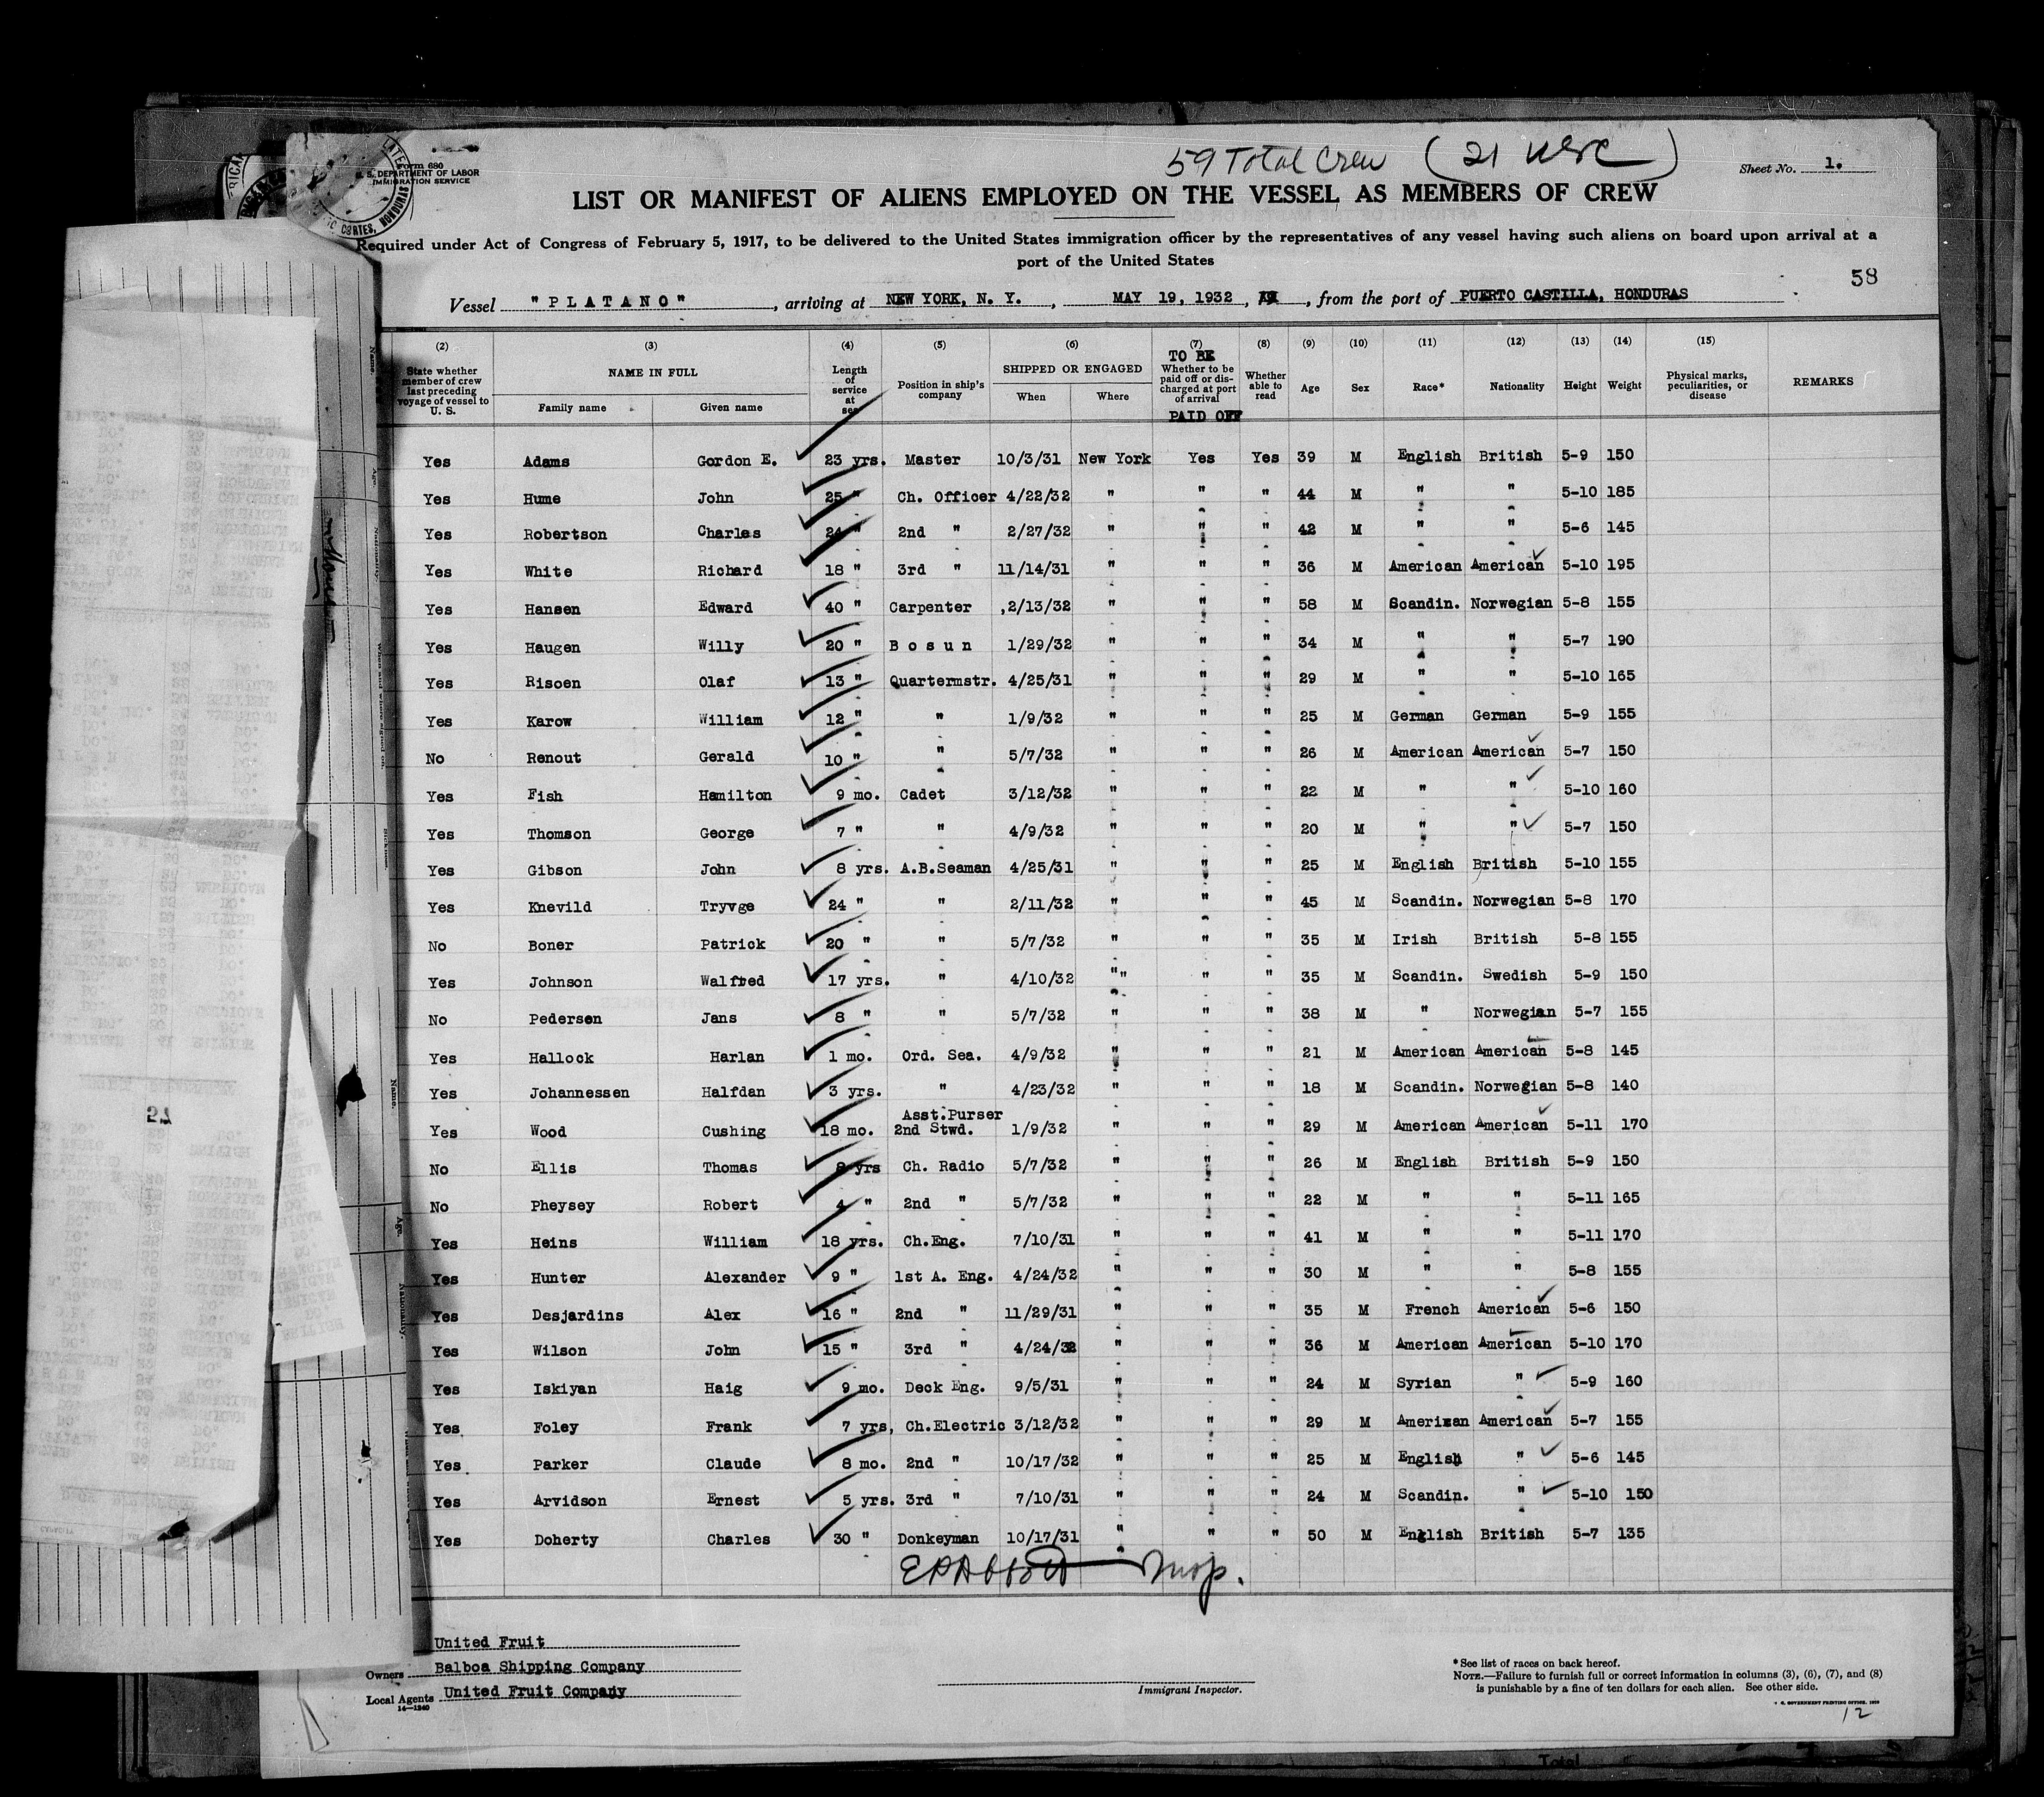 59 Total Crew (21 USC)
Form 680
U. S. DEPARTMENT OF LABOR
IMMIGRATION SERVICE
Sheet No. 1.
LIST OR MANIFEST OF ALIENS EMPLOYED ON THE VESSEL AS MEMBERS OF CREW
Required under Act of Congress of February 5, 1917, to be delivered to the United States immigration officer by the representatives of any vessel having such aliens on board upon arrival at a
port of the United States
58
Vessel "PLATANO", arriving at NEW YORK, N. Y., MAY 19, 1932, 19, from the port of PUERTO CASTILLA, HONDURAS
(2) (3) (4) (5) (6) (7) (8) (9) (10) (11) (12) (13) (14) (15)
State whether member of crew last preceding voyage of vessel to U. S. NAME IN FULL Family name Given name Length of service at sea Position in ship's company SHIPPED OR ENGAGED When Where TO BE Whether to be paid off or discharged at port of arrival PAID OFF Whether able to read Age Sex Race* Nationality Height Weight Physical marks, peculiarities, or disease REMARKS
Yes Adams Gordon E. 23 yrs. Master 10/3/31 New York Yes Yes 39 M English British 5-9 150
Yes Hume John 25 " Ch. Officer 4/22/32 " " " 44 M " " 5-10 185
Yes Robertson Charles 24 " 2nd " 2/27/32 " " " 42 M " " 5-6 145
Yes White Richard 18 " 3rd " 11/14/31 " " " 36 M American American 5-10 195
Yes Hansen Edward 40 " Carpenter ,2/13/32 " " " 58 M Scandin. Norwegian 5-8 155
Yes Haugen Willy 20 " Bosun 1/29/32 " " " 34 M " " 5-7 190
Yes Risoen Olaf 13 " Quartermstr. 4/25/31 " " " 29 M " " 5-10 165
Yes Karow William 12 " " 1/9/32 " " " 25 M German German 5-9 155
No Renout Gerald 10 " " 5/7/32 " " " 26 M American American 5-7 150
Yes Fish Hamilton 9 mo. Cadet 3/12/32 " " " 22 M " " 5-10 160
Yes Thomson George 7 " " 4/9/32 " " " 20 M " " 5-7 150
Yes Gibson John 8 yrs. A.B.Seaman 4/25/31 " " " 25 M English British 5-10 155
Yes Knevild Tryvge 24 " " 2/11/32 " " " 45 M Scandin. Norwegian 5-8 170
No Boner Patrick 20 " " 5/7/32 " " " 35 M Irish British 5-8 155
Yes Johnson Walfred 17 yrs. " 4/10/32 "" " " 35 M Scandin. Swedish 5-9 150
No Pedersen Jans 8 " " 5/7/32 " " " 38 M " Norwegian 5-7 155
Yes Hallock Harlan 1 mo. Ord. Sea. 4/9/32 " " " 21 M American American 5-8 145
Yes Johannessen Halfdan 3 yrs. " 4/23/32 " " " 18 M Scandin. Norwegian 5-8 140
Yes Wood Cushing 18 mo. Asst.Purser 2nd Stwd. 1/9/32 " " " 29 M American American 5-11 170
No Ellis Thomas 8 yrs Ch. Radio 5/7/32 " " " 26 M English British 5-9 150
No Pheysey Robert 4 " 2nd " 5/7/32 " " " 22 M " " 5-11 165
Yes Heins William 18 yrs. Ch.Eng. 7/10/31 " " " 41 M " " 5-11 170
Yes Hunter Alexander 9 " 1st A. Eng. 4/24/32 " " " 30 M " " 5-8 155
Yes Desjardins Alex 16 " 2nd " 11/29/31 " " " 35 M French American 5-6 150
Yes Wilson John 15 " 3rd " 4/24/32 " " " 36 M American American 5-10 170
Yes Iskiyan Haig 9 mo. Deck Eng. 9/5/31 " " " 24 M Syrian " 5-9 160
Yes Foley Frank 7 yrs, Ch.Electric 3/12/32 " " " 29 M Amerixan American 5-7 155
Yes Parker Claude 8 mo. 2nd " 10/17/32 " " " 25 M English " 5-6 145
Yes Arvidson Ernest 5 yrs. 3rd " 7/10/31 " " " 24 M Scandin. " 5-10 150
Yes Doherty Charles 30 " Donkeyman 10/17/31 " " " 50 M English British 5-7 135
United Fruit
Owners Balboa Shipping Company
Local Agents United Fruit Company
14—1240
Immigrant Inspector.
* See list of races on back hereof.
NOTE.—Failure to furnish full or correct information in columns (3), (6), (7), and (8)
is punishable by a fine of ten dollars for each alien. See other side.
12
Total